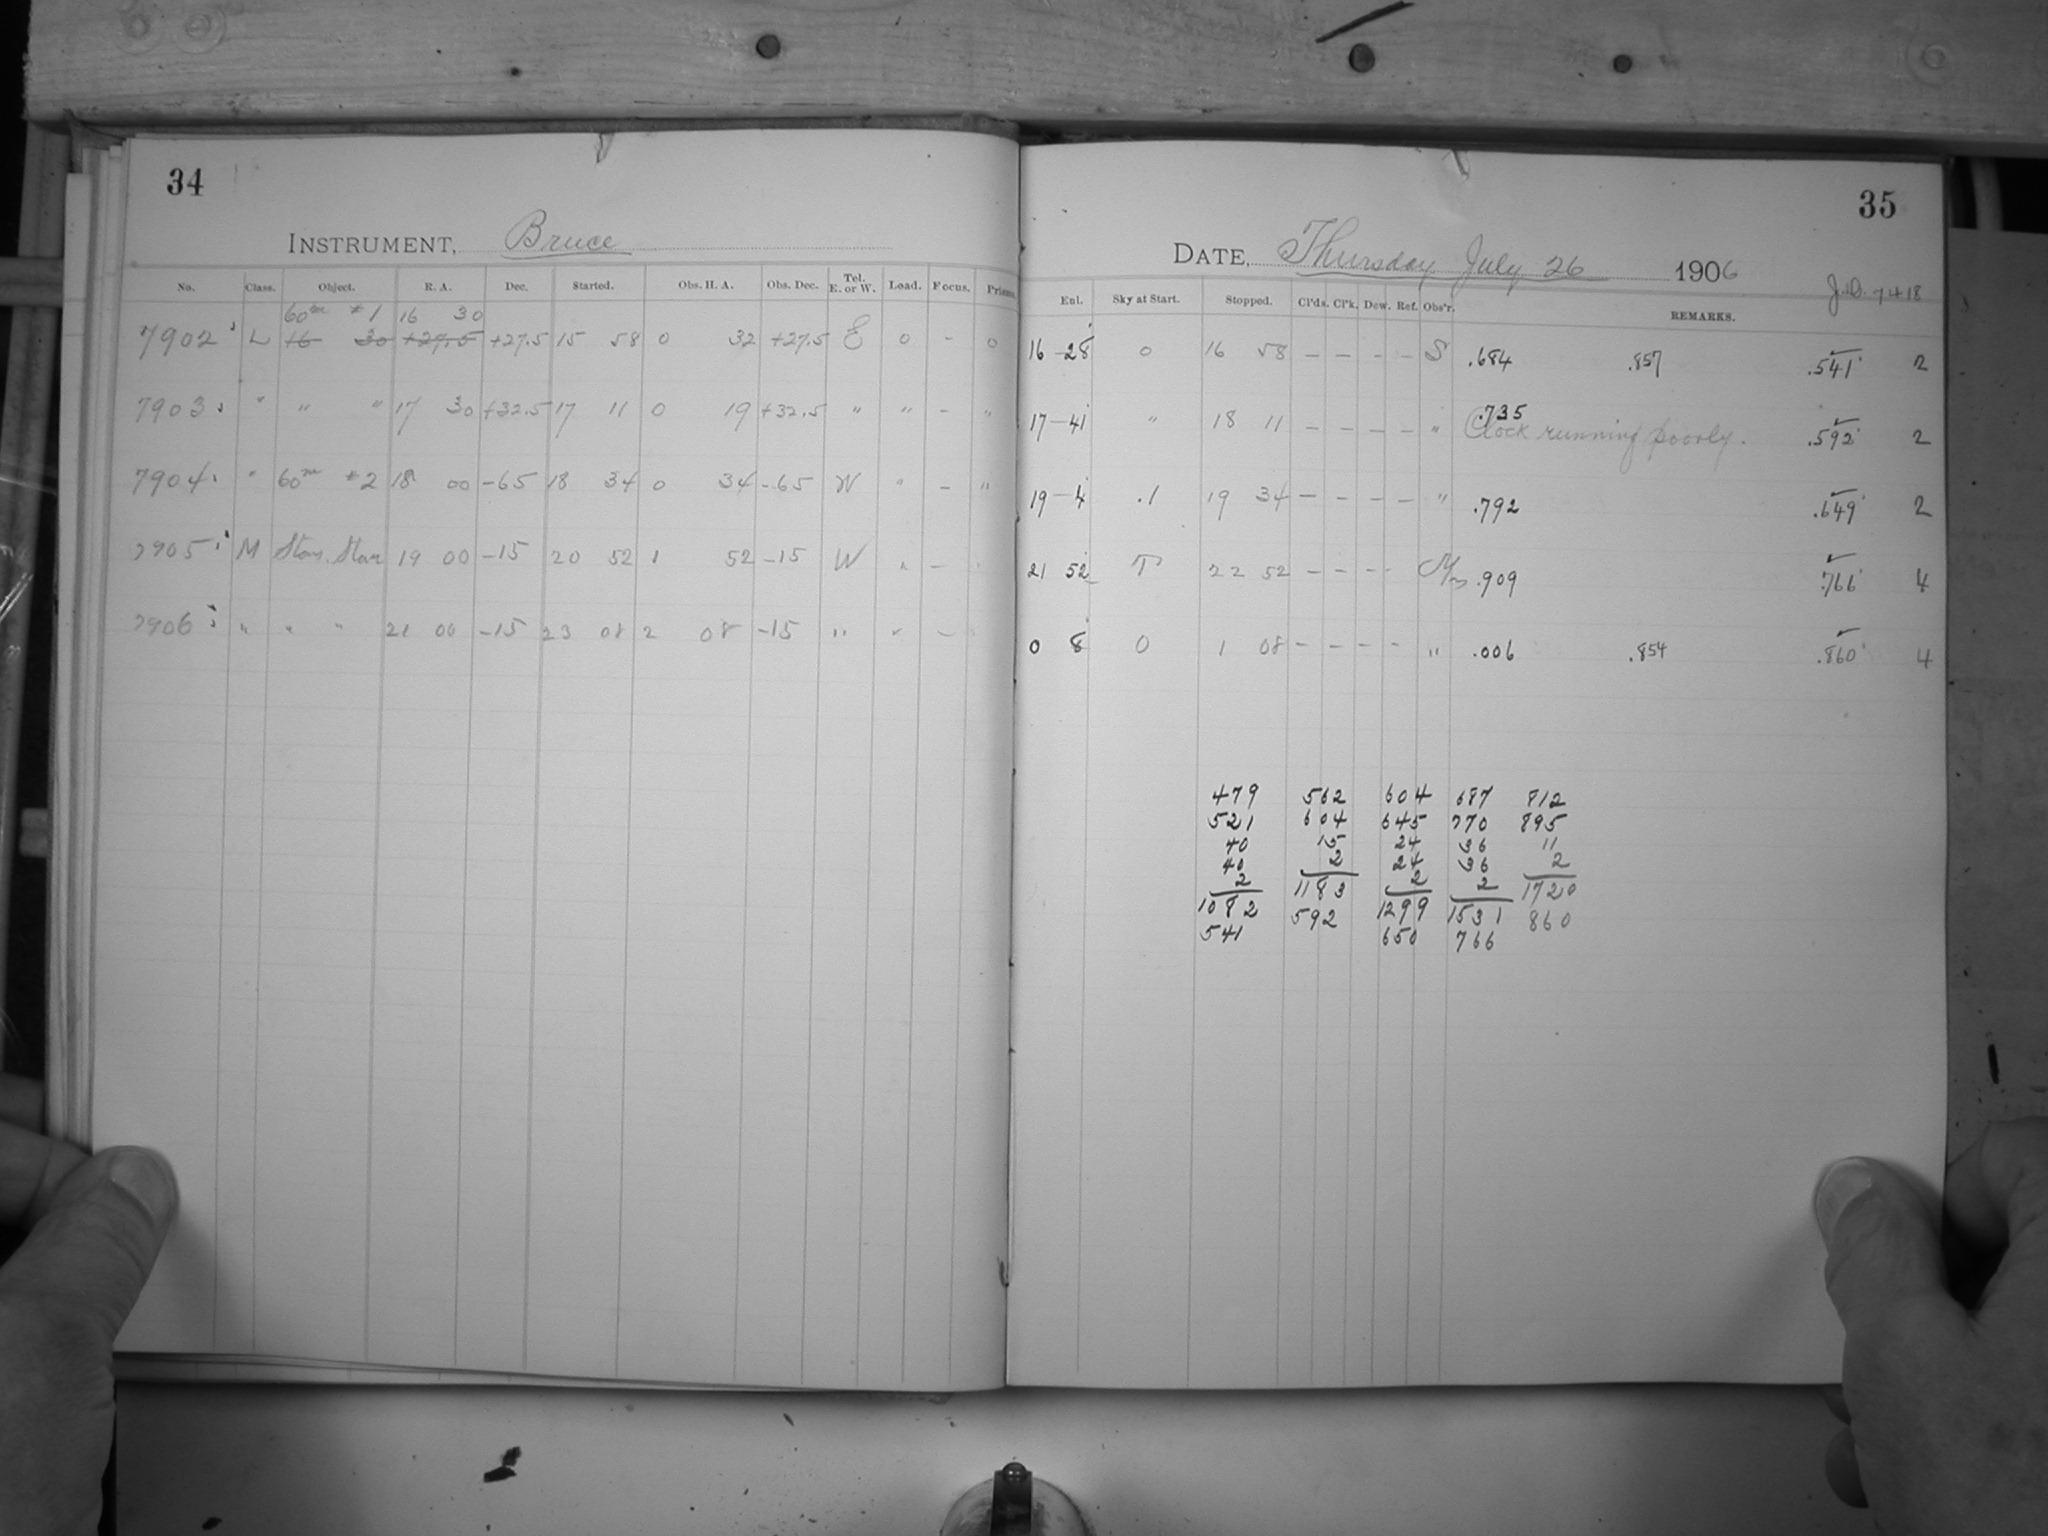 34
INSTRUMENT, Bruce
No. Class. Object. R. A. Dec. Started. Obs. H. A. Obs. Dec. Tel. E. or W. Load. Focus. Prisms
60m #1 16 30
7902 L 16 30 +27.5 +27.5 15 58 0 32 +27.5 E 0 - 0
7903 " " " 17 30 +32.5 17 11 0 19 +32.5 " " - "
7904 " 60m #2 18 00 -65 18 34 0 34 -65 W " - "
7905 M Stan. Star 19 00 -15 20 52 1 52 -15 W " -
7906 " " " 21 00 -15 23 08 2 08 -15 " " -
35
DATE, Thursday July 26 1906
J.D. 7418
Enl. Sky at Start. Stopped. Cl'ds. Cl'k. Dew. Ref. Obs'r. REMARKS.
16-28 0 16 58 - - - - S .684 .857 .541 2
.735
17-41 " 18 11 - - - - " Clock running poorly. .592 2
19-4 .1 19 34 - - - - " .792 .649 2
21 52 T 22 52 - - - - .909 .766 4
0 8 0 1 08 - - - - " .006 .854 .860 4
479 562 604 687 812
521 604 645 770 895
40 15 24 36 11
40 2 24 36 2
2 1183 2 2 1720
1082 592 1299 1531 860
541 650 766